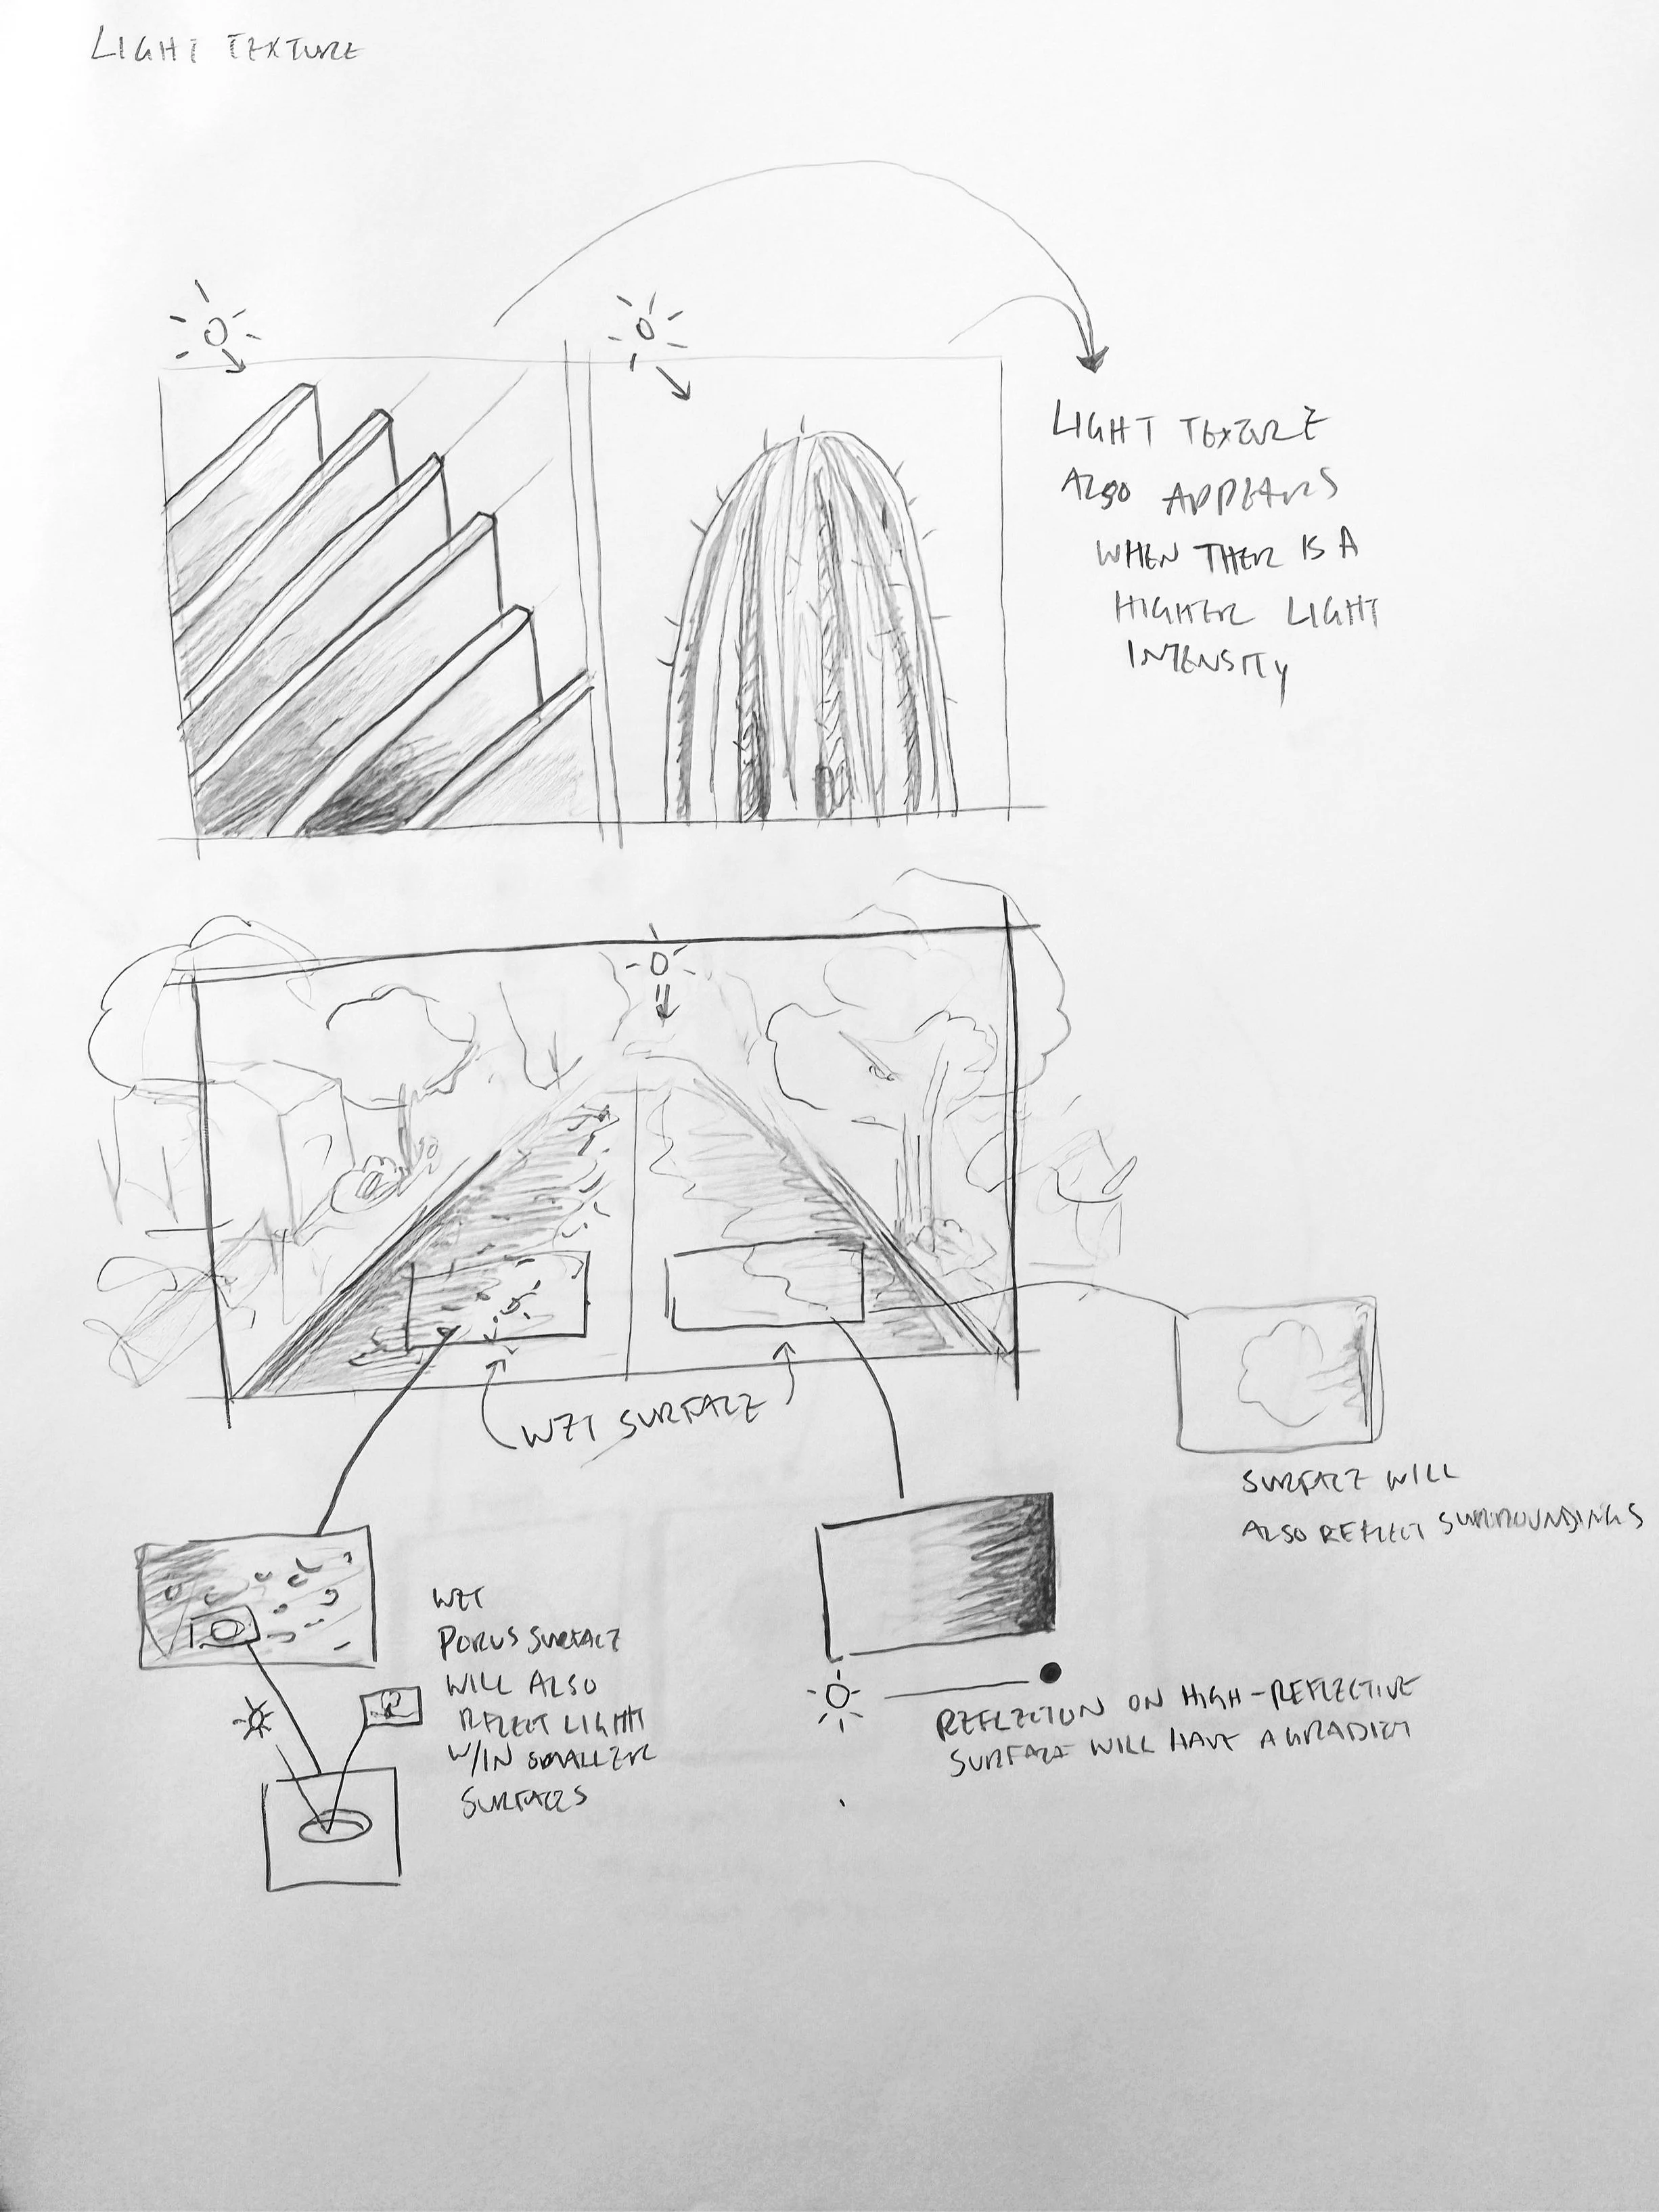 LIGHT TEXTURE
LIGHT TEXTURE
ALSO APPEARS
WHEN THER IS A
HIGHER LIGHT
INTENSITY
WET SURFACE
SURFACE WILL
ALSO REFLECT SURROUNDINGS
WET
PORUS SURFACE
WILL ALSO
RFLECT LIGHT
W/IN SMALLER
SURFACES
REFLECTION ON HIGH-REFLECTIVE
SURFACE WILL HAVE A GRADIET